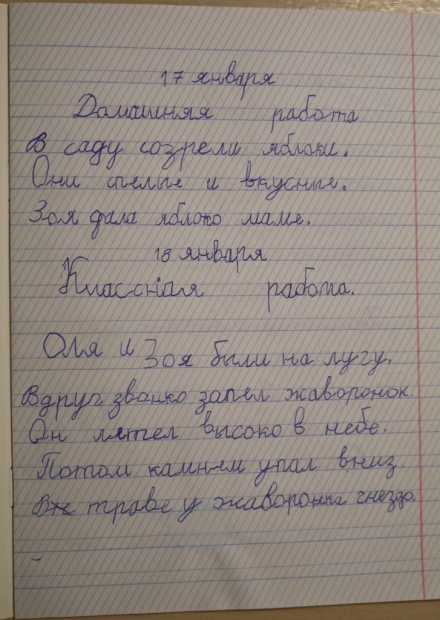 17 января
Домашняя работа
В саду созрели яблоки.
Они спелые и вкусные.
Зоя дала яблоко маме.
18 января
Классная работа.
Оля и Зоя были на лугу.
Вдруг звонко запел жаворонок.
Он летел высоко в небе.
Потом камнем упал вниз.
В траве у жаворонка гнездо.